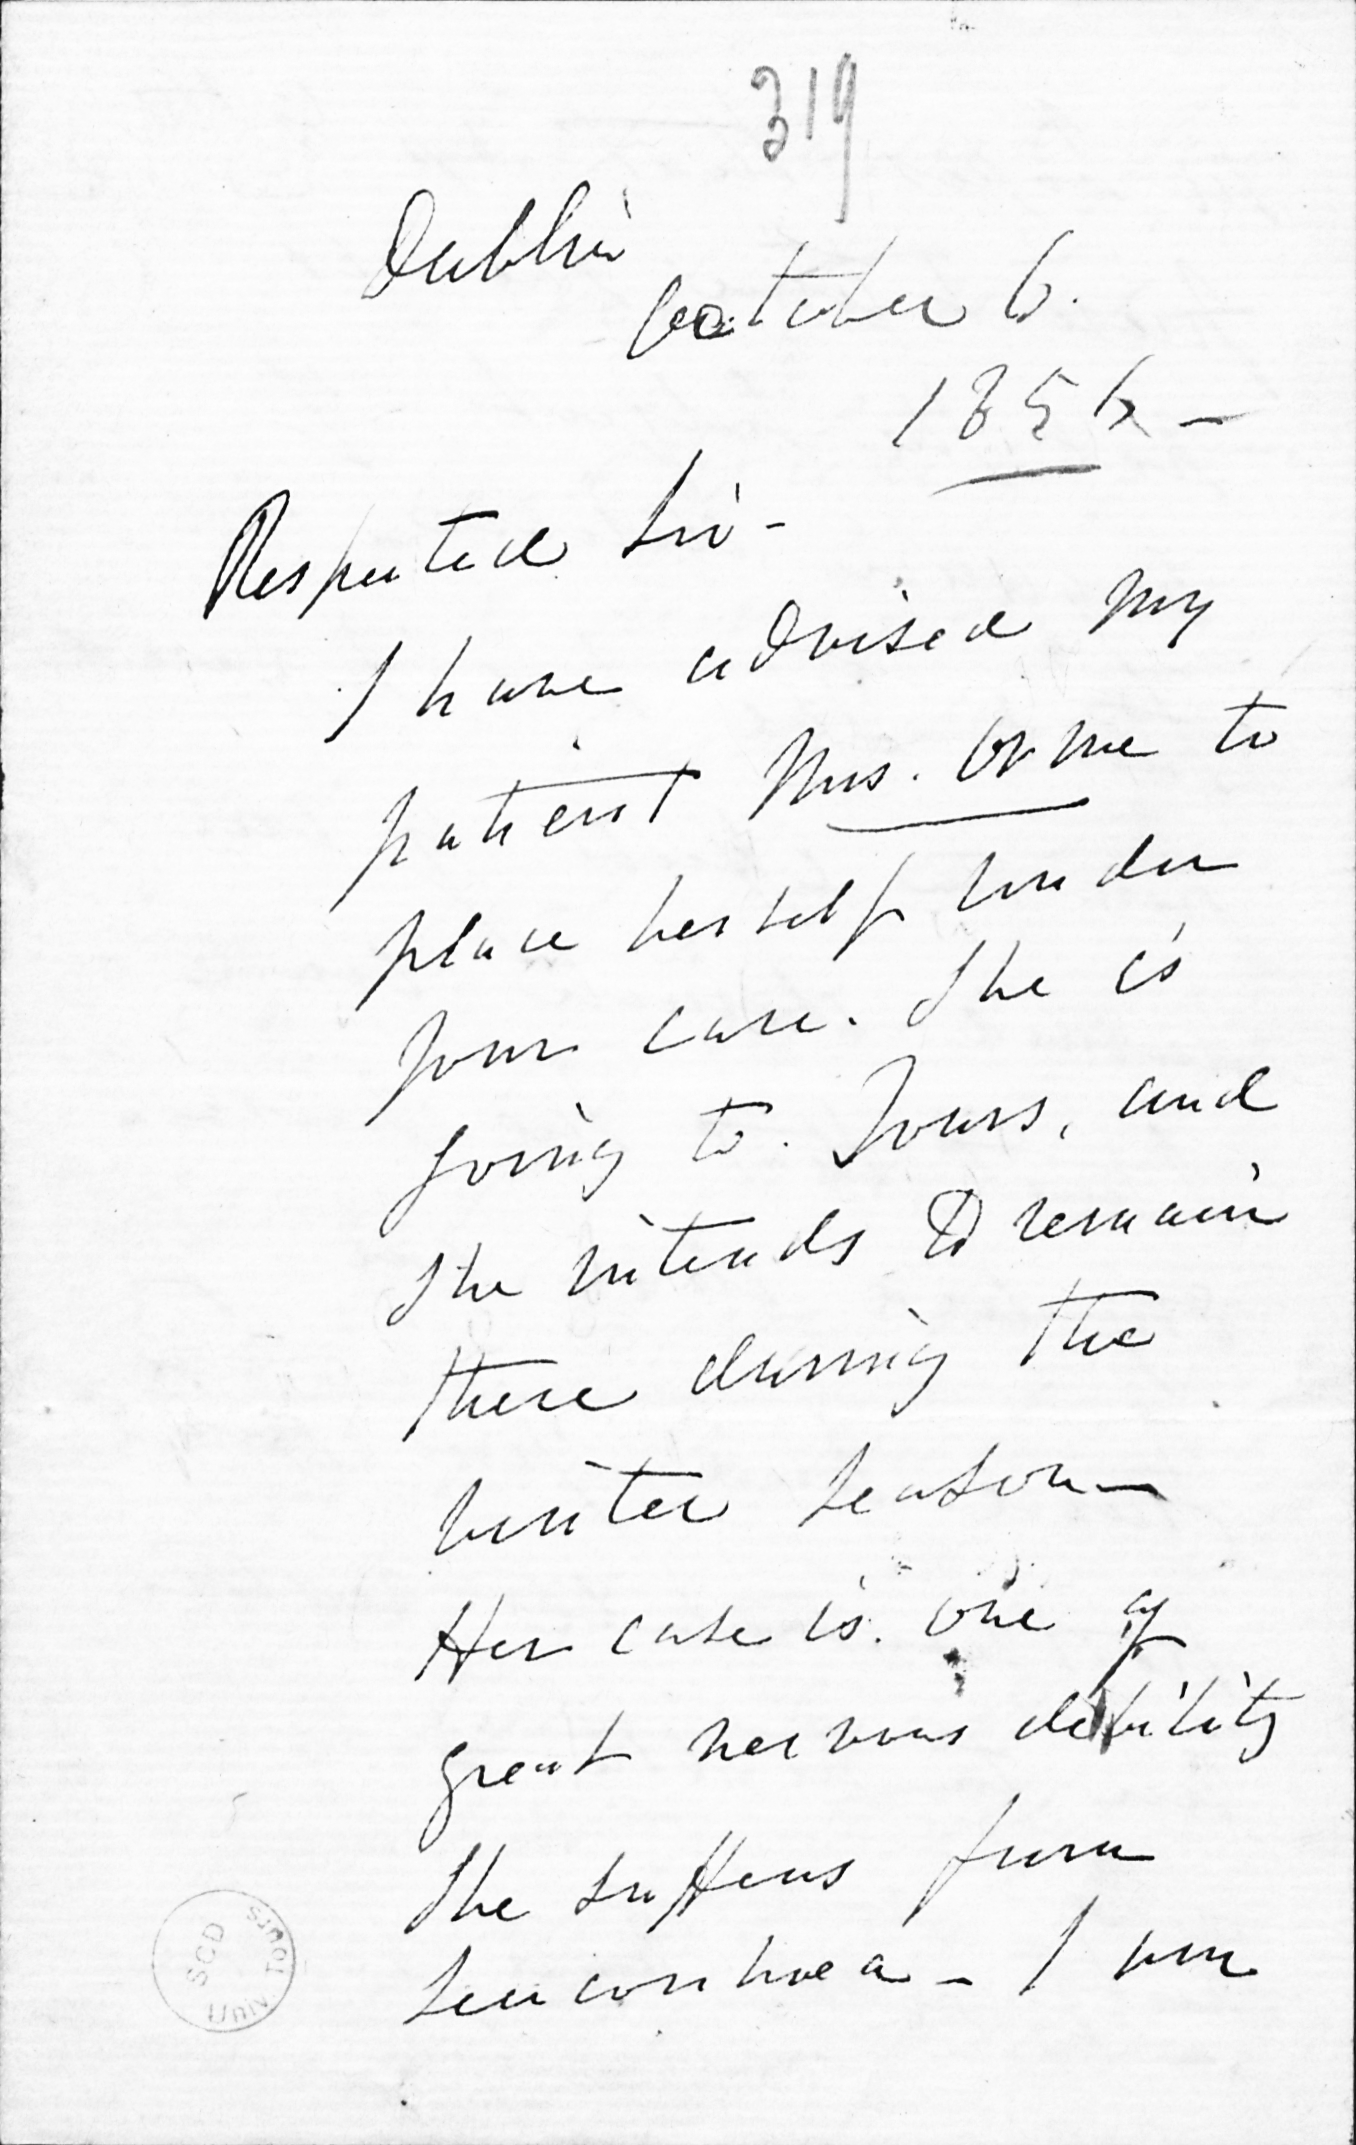 319
Dublin
October 6.
1856 -
Respected Sir -
I have advised my
patient Mrs. Orme to
place herself under
your care. She is
going to Tours, and
she intends to remain
there during the
winter season -
Her case is one of
great nervous debility
She suffers from
Leucorrhoea - I am
SCD
Univ. Tours